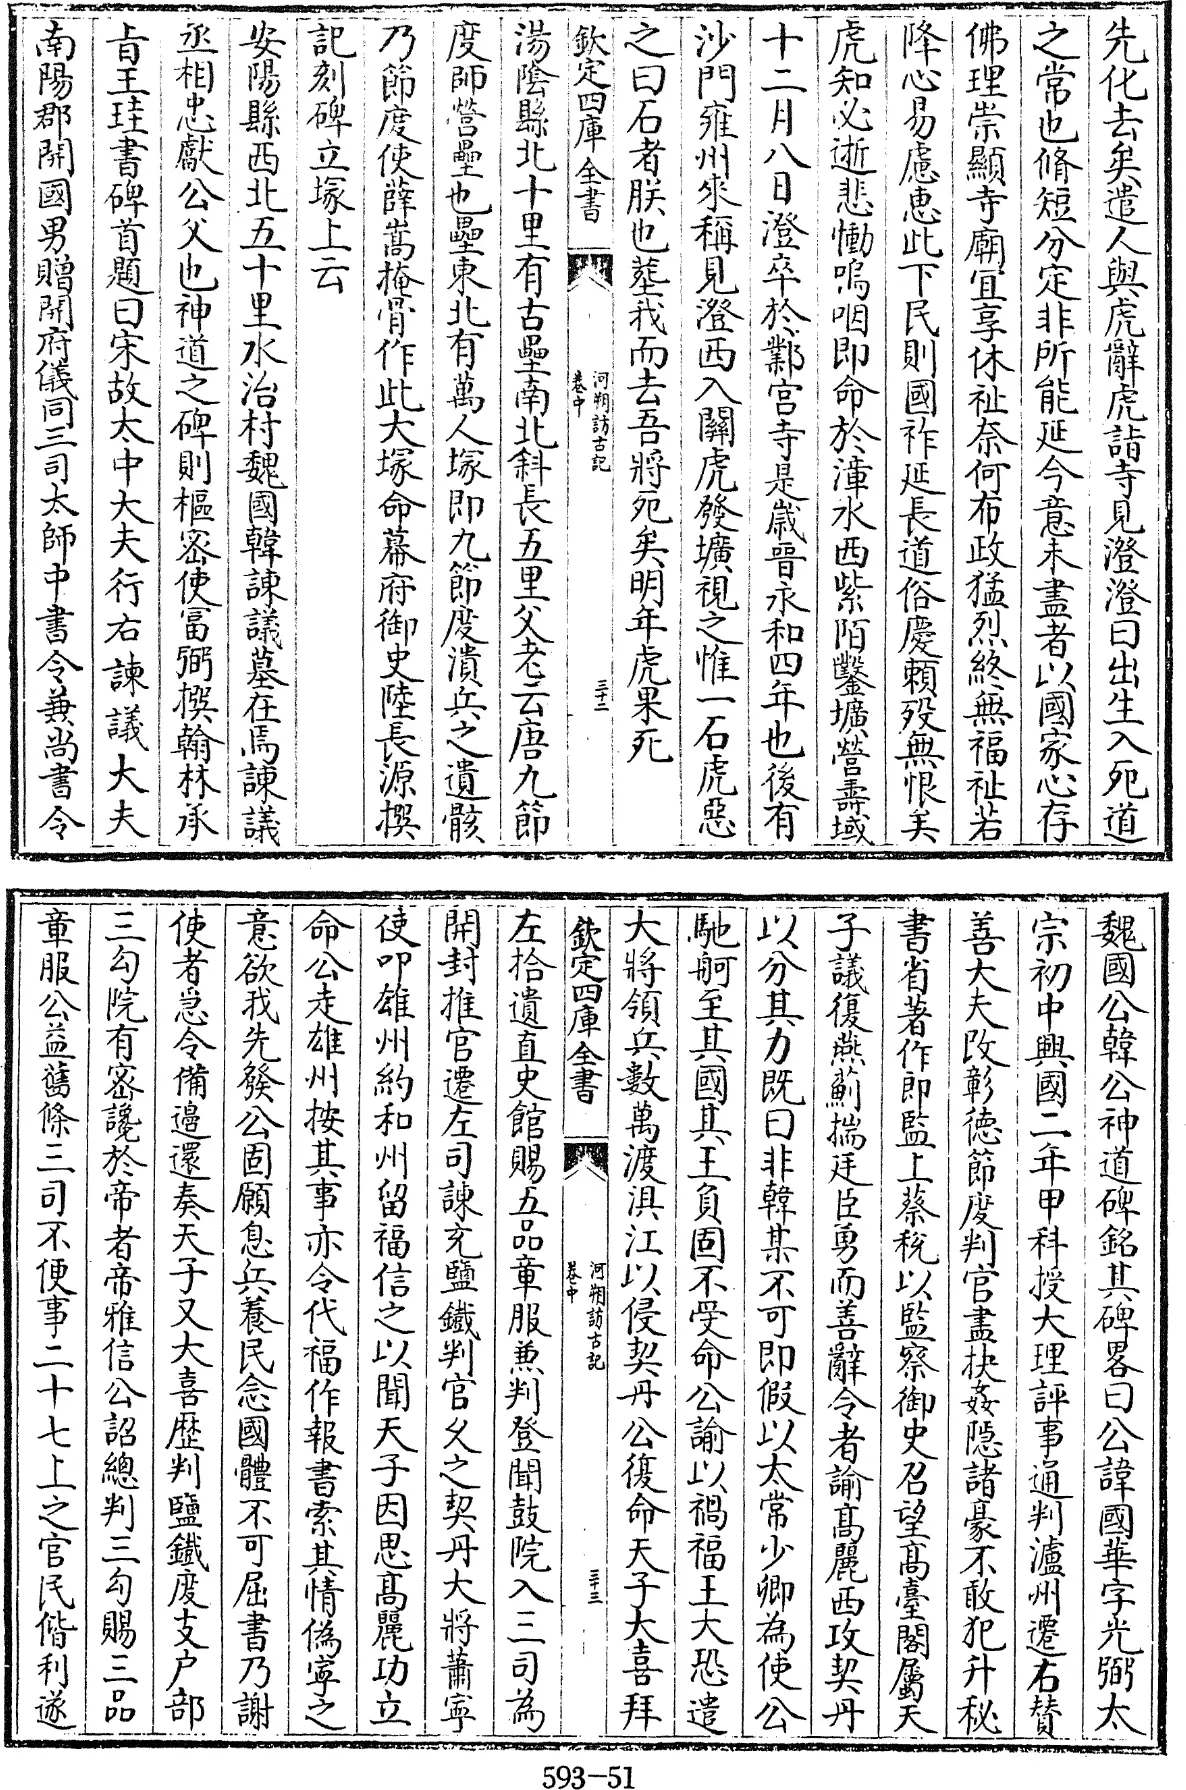 先化去矣遣人與虎辭虎詣寺見澄澄曰出生入死道
之常也脩短分定非所能延今意未盡者以國家心存
佛理崇顯寺廟宜享休祉奈何布政猛烈終無福祉若
降心易慮惠此下民則國祚延長道俗慶賴殁無恨矣
虎知必逝悲慟嗚咽即命於漳水西紫陌鑿壙營壽域
十二月八日澄卒於鄴宮寺是歲晉永和四年也後有
沙門雍州來稱見澄西入關虎發壙視之惟一石虎惡
之曰石者朕也塟我而去吾將死矣明年虎果死
欽定四庫全書
河朔訪古記
卷中
三十二
湯陰縣北十里有古壘南北斜長五里父老云唐九節
度師營壘也壘東北有萬人塚即九節度潰兵之遺骸
乃節度使薛嵩掩骨作此大塚命幕府御史陸長源撰
記刻碑立塚上云
安陽縣西北五十里水冶村魏國韓諫議墓在焉諫議
丞相忠獻公父也神道之碑則樞密使富弼撰翰林承
㫖王珪書碑首題曰宋故太中大夫行右諫議大夫
南陽郡開國男贈開府儀同三司太師中書令兼尚書令
魏國公韓公神道碑銘其碑畧曰公諱國華字光弼太
宗初中興國二年甲科授大理評事通判瀘州遷右贊
善大夫改彰德節度判官盡抉姦隱諸豪不敢犯升秘
書省著作郎監上蔡稅以監察御史召望高臺閣屬天
子議復燕薊揣廷臣勇而善辭令者諭高麗西攻契丹
以分其力既曰非韓某不可即假以太常少卿為使公
馳舸至其國其王負固不受命公諭以禍福王大恐遣
大將領兵數萬渡浿江以侵契丹公復命天子大喜拜
欽定四庫全書
河朔訪古記
卷中
三十三
左拾遺直史館賜五品章服兼判登聞鼓院入三司為
開封推官遷左司諫充鹽鐵判官久之契丹大將蕭寧
使叩雄州約和州留福信之以聞天子因思高麗功立
命公走雄州按其事亦令代福作報書索其情偽寧之
意欲我先發公固願息兵養民念國體不可屈書乃謝
使者急令備邊還奏天子又大喜歷判鹽鐵度支户部
三勾院有密讒於帝者帝雅信公詔總判三勾賜三品
章服公益舊條三司不便事二十七上之官民偕利遂
593-51